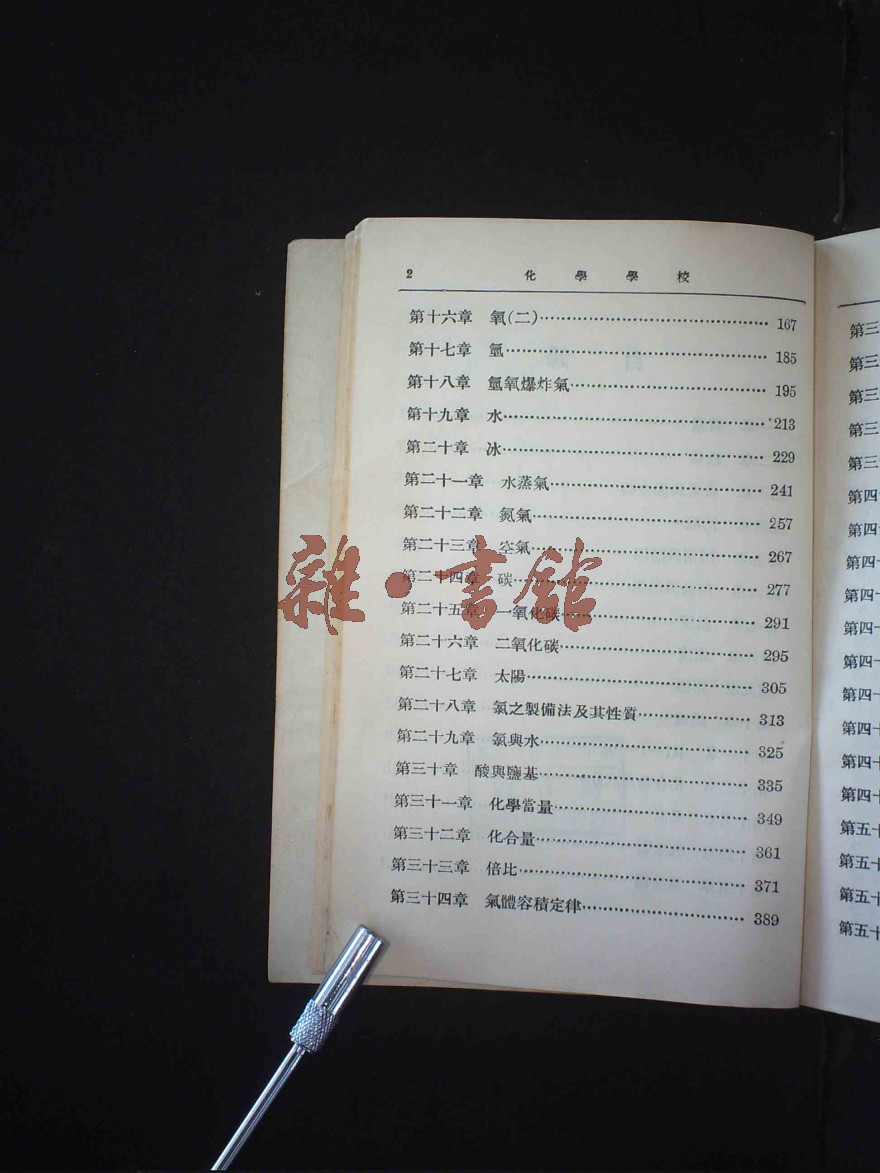 2 化學學校
第十六章 氧(二) 167
第十七章 氫 185
第十八章 氫氧爆炸氣 195
第十九章 水 213
第二十章 冰 229
第二十一章 水蒸氣 241
第二十二章 氮氣 257
第二十三章 空氣 267
第二十四章 碳 277
第二十五章 一氧化碳 291
第二十六章 二氧化碳 295
第二十七章 太陽 305
第二十八章 氯之製備法及其性質 313
第二十九章 氯與水 325
第三十章 酸與鹽基 335
第三十一章 化學當量 349
第三十二章 化合量 361
第三十三章 倍比 371
第三十四章 氣體容積定律 389
雜·書館
第三
第三
第三
第三
第三
第四
第四十
第四十
第四十
第四十
第四十
第四十
第四十
第四十
第四十
第五十
第五十
第五十
第五十